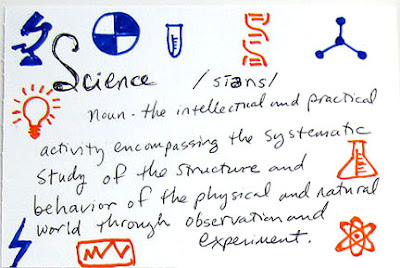 Science /sīəns/
noun - the intellectual and practical
activity encompassing the systematic
study of the structure and
behavior of the physical and natural
world through observation and
experiment.